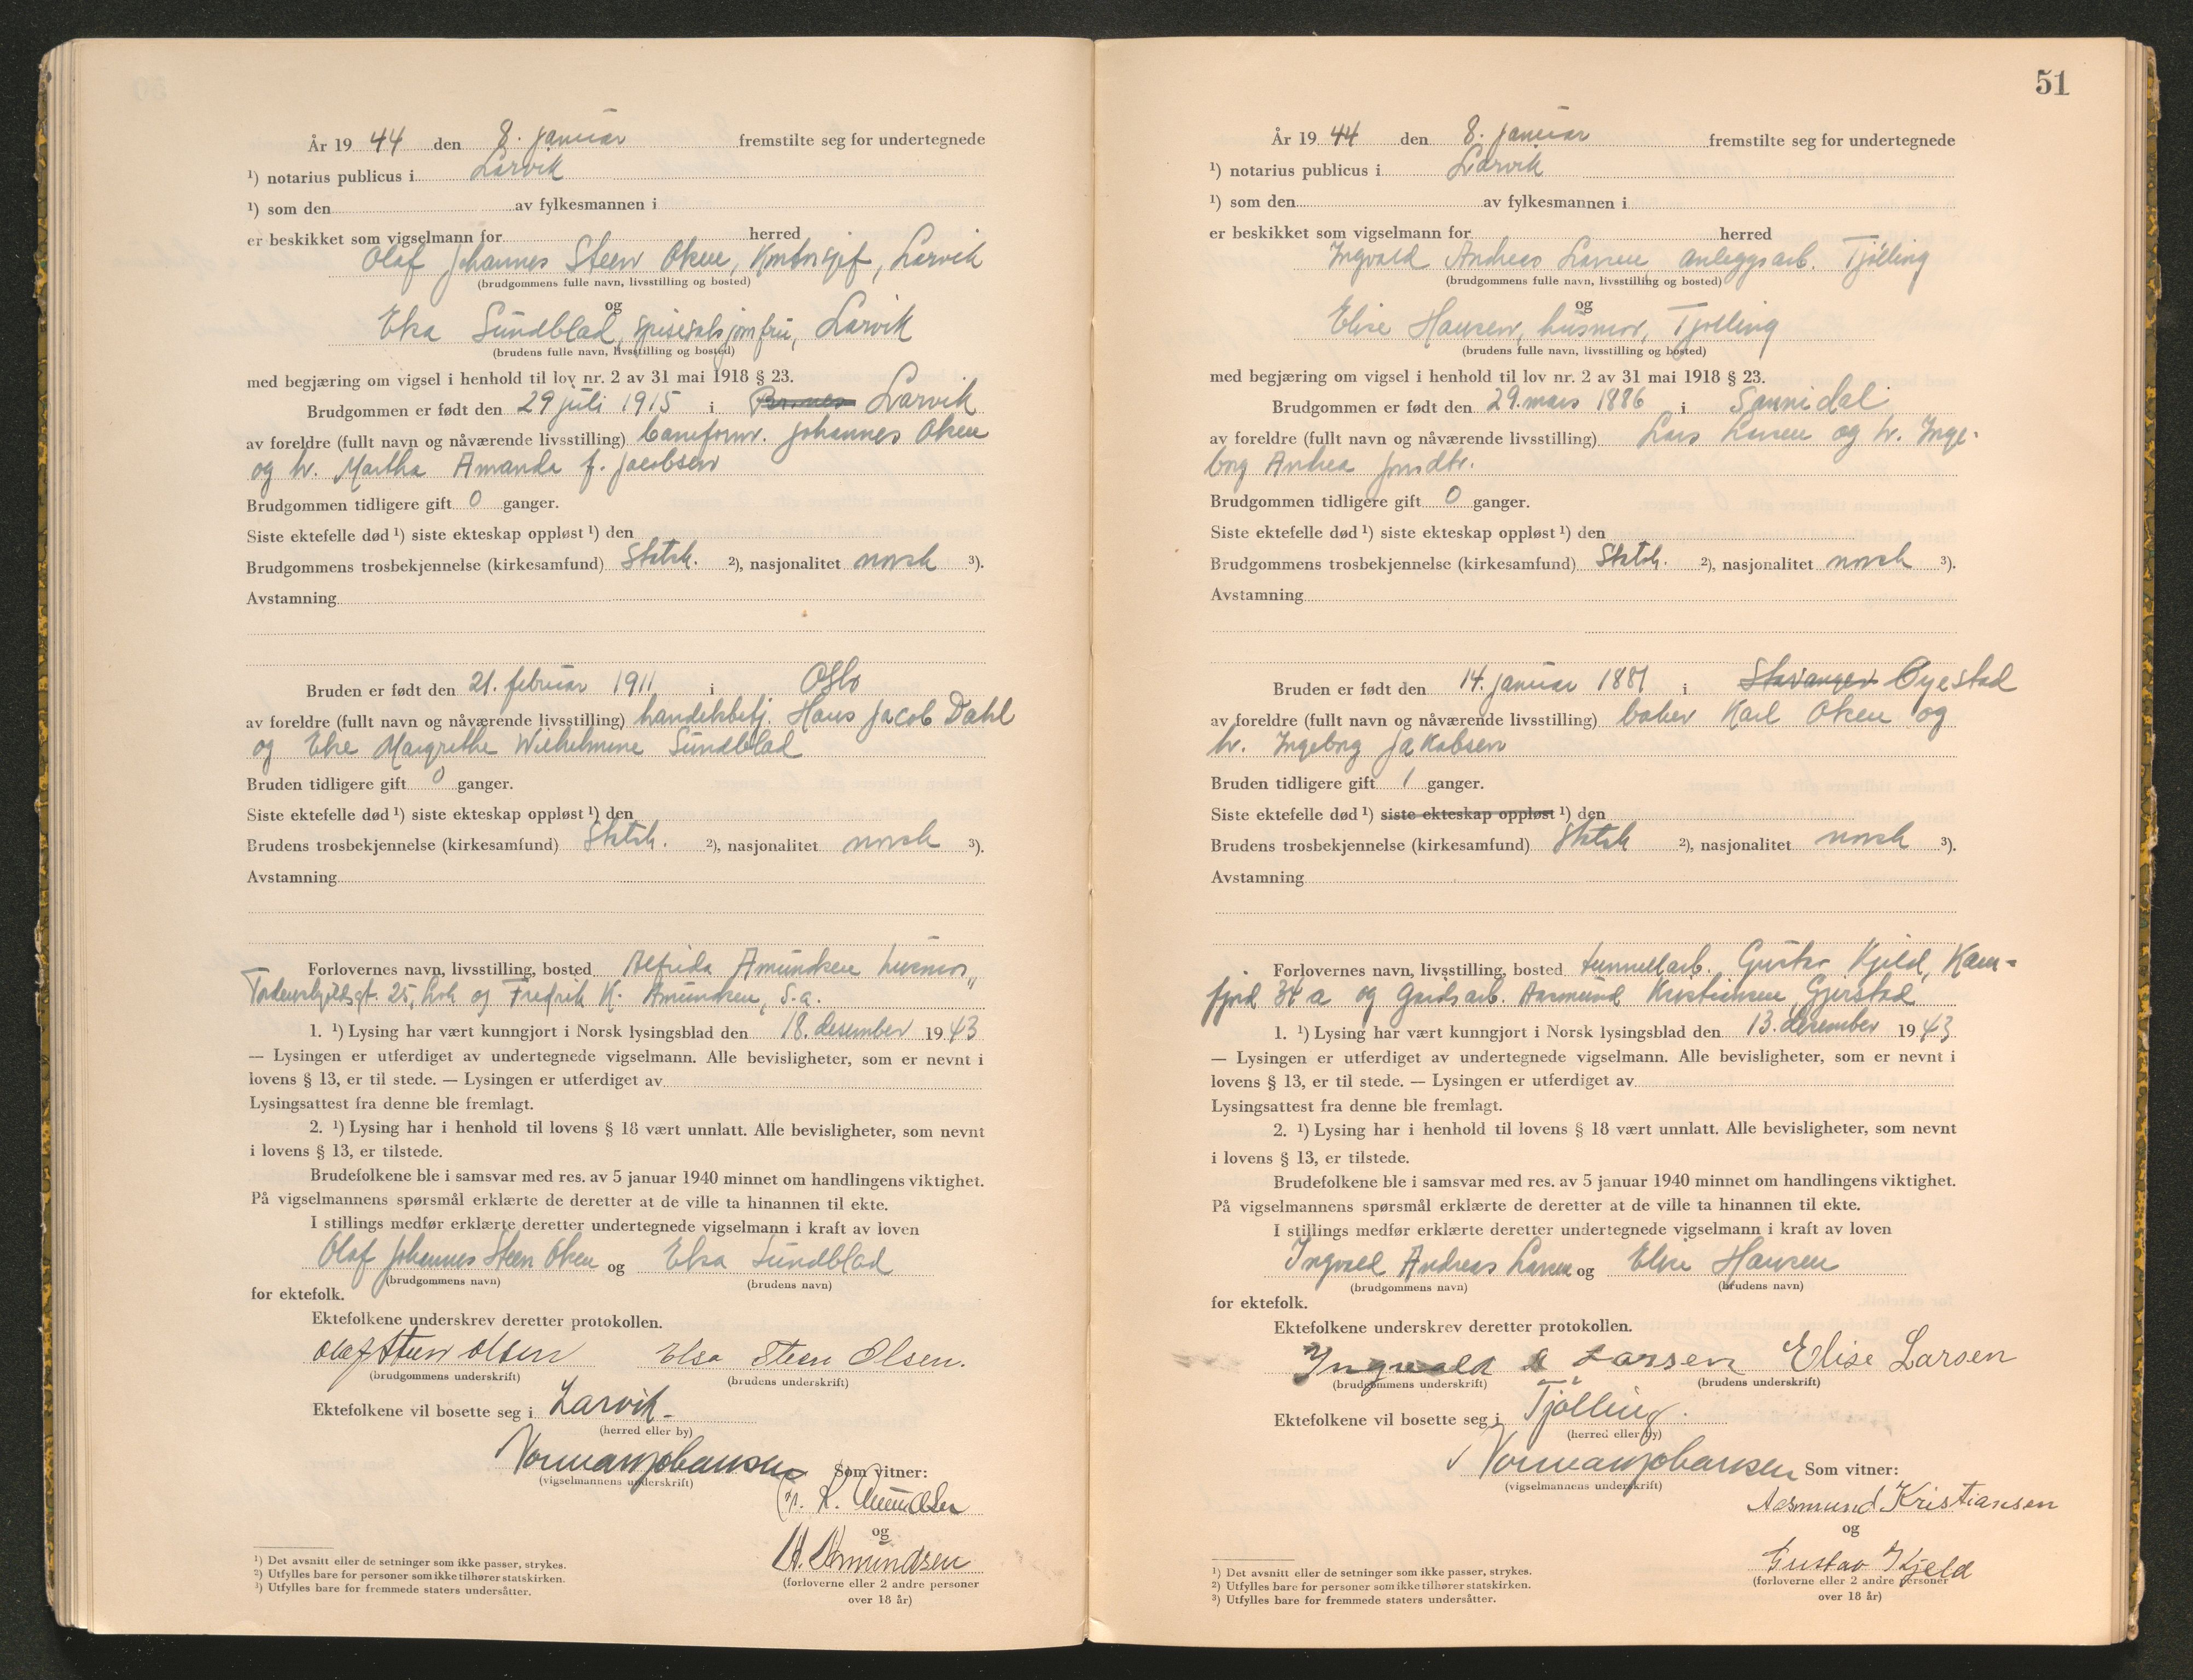 År 19 44 den 8. januar fremstilte seg for undertegnede
¹) notarius publicus i Larvik
¹) som den av fylkesmannen i
er beskikket som vigselmann for herred
Olaf Johannes Steen Olsen, Kontorsjef, Larvik
(brudgommens fulle navn, livsstilling og bosted)
og
Elsa Sundblad, spisesalsjomfru, Larvik
(brudens fulle navn, livsstilling og bosted)
med begjæring om vigsel i henhold til lov nr. 2 av 31 mai 1918 § 23.
Brudgommen er født den 29 juli 1915 i Larvik
av foreldre (fullt navn og nåværende livsstilling) baneform. Johannes Olsen
og h. Martha Amanda f. Jacobsen
Brudgommen tidligere gift 0 ganger.
Siste ektefelle død ¹) siste ekteskap oppløst ¹) den
Brudgommens trosbekjennelse (kirkesamfund) Statsk. ²), nasjonalitet norsk ³).
Avstamning
Bruden er født den 21. februar 1911 i Oslo
av foreldre (fullt navn og nåværende livsstilling) handelsbetj. Hans Jacob Dahl
og Else Margrethe Wilhelmine Sundblad
Bruden tidligere gift 0 ganger.
Siste ektefelle død ¹) siste ekteskap oppløst ¹) den
Brudens trosbekjennelse (kirkesamfund) Statsk. ²), nasjonalitet norsk ³).
Avstamning
Forlovernes navn, livsstilling, bosted Alfrida Amundsen husmor,
Tordenskjoldsgt. 25, Lvk og Fredrik K. Amundsen, s.a.
1. ¹) Lysing har vært kunngjort i Norsk lysingsblad den 18. desember 19 43
— Lysingen er utferdiget av undertegnede vigselmann. Alle bevisligheter, som er nevnt i
lovens § 13, er til stede. — Lysingen er utferdiget av
Lysingsattest fra denne ble fremlagt.
2. ¹) Lysing har i henhold til lovens § 18 vært unnlatt. Alle bevisligheter, som nevnt
i lovens § 13, er tilstede.
Brudefolkene ble i samsvar med res. av 5 januar 1940 minnet om handlingens viktighet.
På vigselmannens spørsmål erklærte de deretter at de ville ta hinannen til ekte.
I stillings medfør erklærte deretter undertegnede vigselmann i kraft av loven
Olaf Johannes Steen Olsen og Elsa Sundblad
(brudgommens navn) (brudens navn)
for ektefolk.
Ektefolkene underskrev deretter protokollen.
Olaf Steen Olsen Elsa Steen Olsen.
(brudgommens underskrift) (brudens underskrift)
Ektefolkene vil bosette seg i Larvik
(herred eller by)
Norman Johansen Som vitner:
(vigselmannens underskrift)
Fr. K. Amundsen
og
A. Amundsen
(forloverne eller 2 andre personer
over 18 år)
¹) Det avsnitt eller de setninger som ikke passer, strykes.
²) Utfylles bare for personer som ikke tilhører statskirken.
³) Utfylles bare for fremmede staters undersåtter.
51
År 19 44 den 8. januar fremstilte seg for undertegnede
¹) notarius publicus i Larvik
¹) som den av fylkesmannen i
er beskikket som vigselmann for herred
Ingvald Andreas Larsen anleggsarb. Tjölling
(brudgommens fulle navn, livsstilling og bosted)
og
Elise Hansen, husmor, Tjølling
(brudens fulle navn, livsstilling og bosted)
med begjæring om vigsel i henhold til lov nr. 2 av 31 mai 1918 § 23.
Brudgommen er født den 29. mars 1886 i Sannidal
av foreldre (fullt navn og nåværende livsstilling) Lars Larsen og h. Inge-
borg Andrea Jonsdtr.
Brudgommen tidligere gift 0 ganger.
Siste ektefelle død ¹) siste ekteskap oppløst ¹) den
Brudgommens trosbekjennelse (kirkesamfund) Statsk. ²), nasjonalitet norsk ³).
Avstamning
Bruden er født den 14. januar 1881 i Stavanger Øyestad
av foreldre (fullt navn og nåværende livsstilling) baker Karl Olsen og
h. Ingeborg Jakobsen
Bruden tidligere gift 1 ganger.
Siste ektefelle død ¹) siste ekteskap oppløst ¹) den
Brudens trosbekjennelse (kirkesamfund) Statsk ²), nasjonalitet norsk ³).
Avstamning
Forlovernes navn, livsstilling, bosted tunnellarb. Gustav Kjeld, Kam-
fjord 34 a og Gårdsarb. Aasmund Kristiansen, Gjerstad
1. ¹) Lysing har vært kunngjort i Norsk lysingsblad den 13. desember 19 43
— Lysingen er utferdiget av undertegnede vigselmann. Alle bevisligheter, som er nevnt i
lovens § 13, er til stede. — Lysingen er utferdiget av
Lysingsattest fra denne ble fremlagt.
2. ¹) Lysing har i henhold til lovens § 18 vært unnlatt. Alle bevisligheter, som nevnt
i lovens § 13, er tilstede.
Brudefolkene ble i samsvar med res. av 5 januar 1940 minnet om handlingens viktighet.
På vigselmannens spørsmål erklærte de deretter at de ville ta hinannen til ekte.
I stillings medfør erklærte deretter undertegnede vigselmann i kraft av loven
Ingvald Andreas Larsen og Elise Hansen
(brudgommens navn) (brudens navn)
for ektefolk.
Ektefolkene underskrev deretter protokollen.
Ingvald A Larsen Elise Larsen
(brudgommens underskrift) (brudens underskrift)
Ektefolkene vil bosette seg i Tjølling.
(herred eller by)
Norman Johansen Som vitner:
(vigselmannens underskrift)
Aasmund Kristiansen
og
Gustav Kjeld
(forloverne eller 2 andre personer
over 18 år)
¹) Det avsnitt eller de setninger som ikke passer, strykes.
²) Utfylles bare for personer som ikke tilhører statskirken.
³) Utfylles bare for fremmede staters undersåtter.